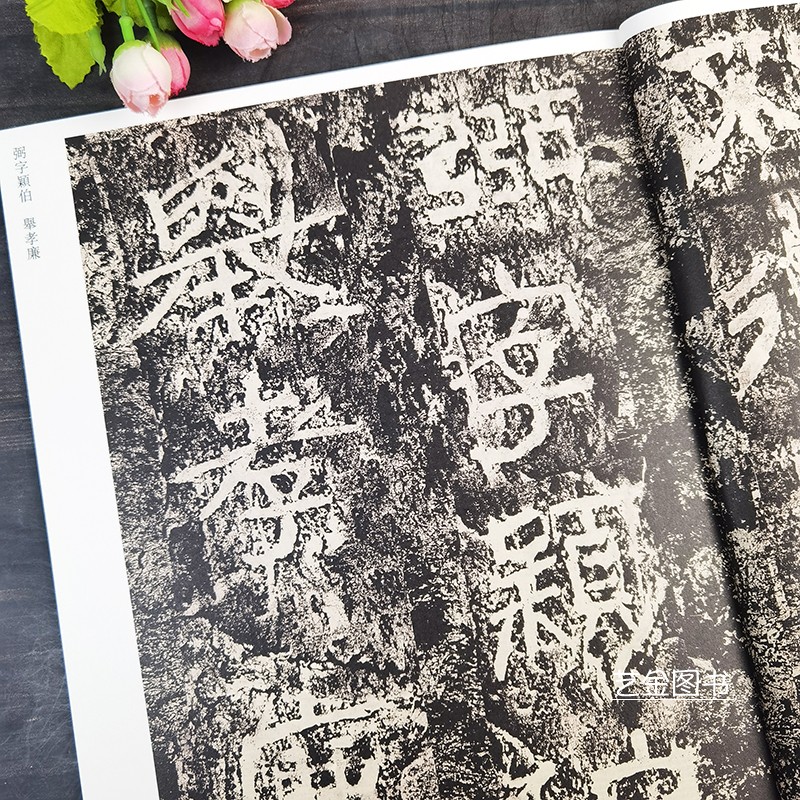 弼字穎
舉孝廉
弼字穎伯　舉孝廉
艺金图书